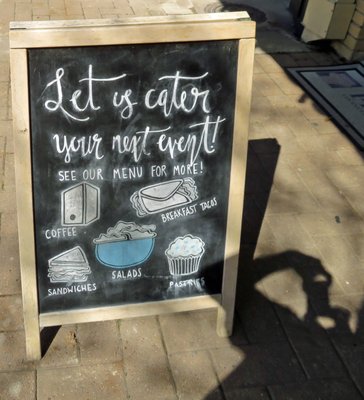 Let us cater
your next event!
SEE OUR MENU FOR MORE!
COFFEE
BREAKFAST TACOS
SANDWICHES
SALADS
PASTRIES